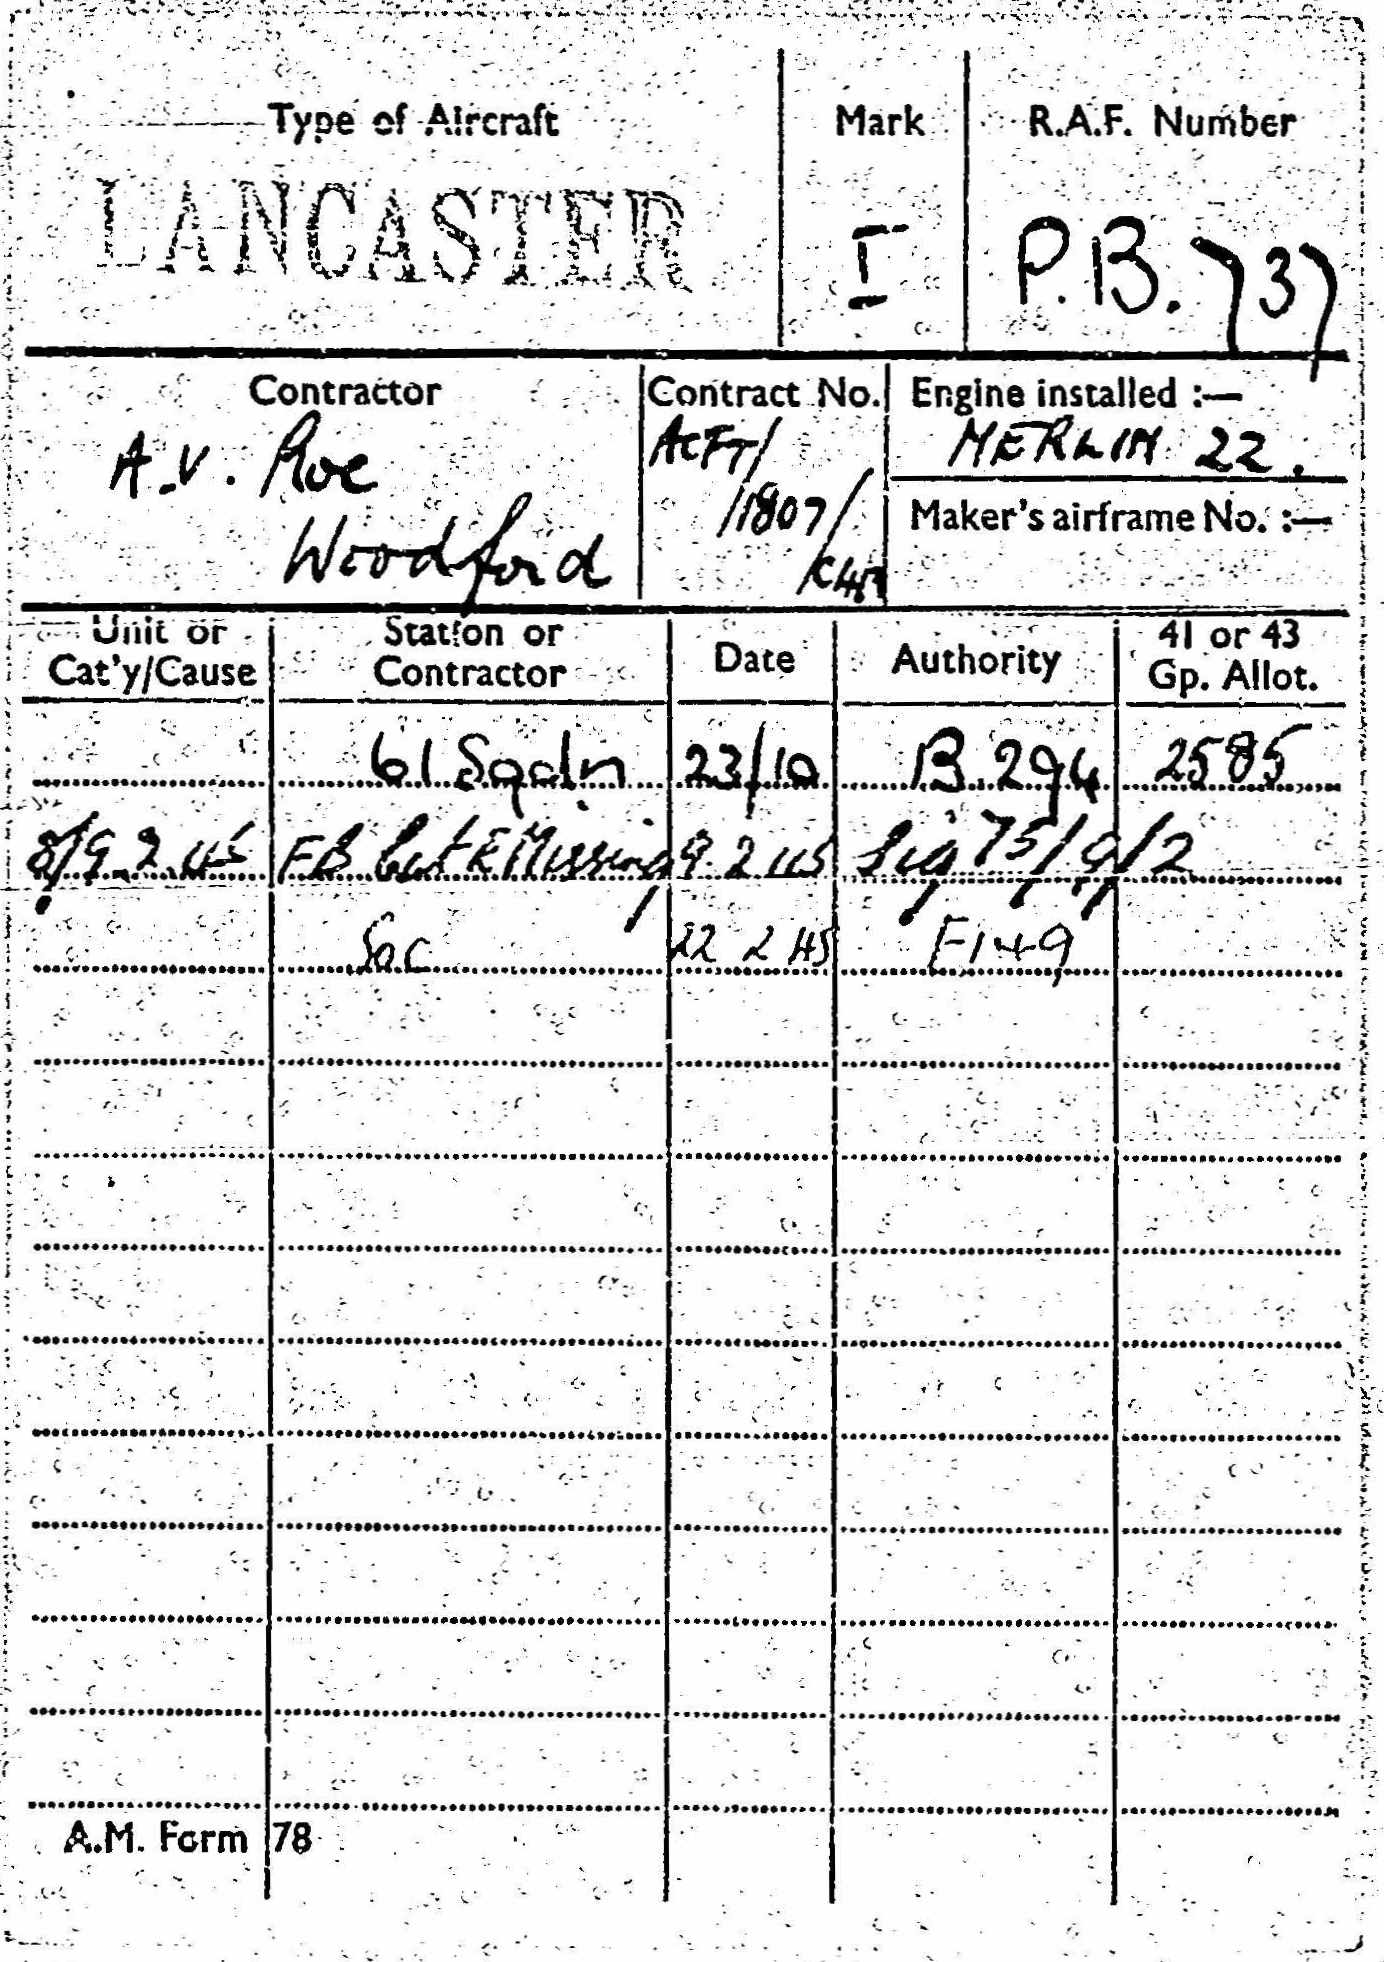 Type of Aircraft Mark R.A.F. Number
LANCASTER I P.B.737
Contractor Contract No. Engine installed :—
A.V. Roe ACFT/ MERLIN 22.
Woodford /1807/ Maker's airframe No. :—
Unit or Station or Date Authority 41 or 43
Cat'y/Cause Contractor Gp. Allot.
61 Sqdn 23/10 B.294 2585
8/9.2.45 FB Missing 9.2.45 Sig 75/9/2
Soc 22 2 45 F149
A.M. Form 78